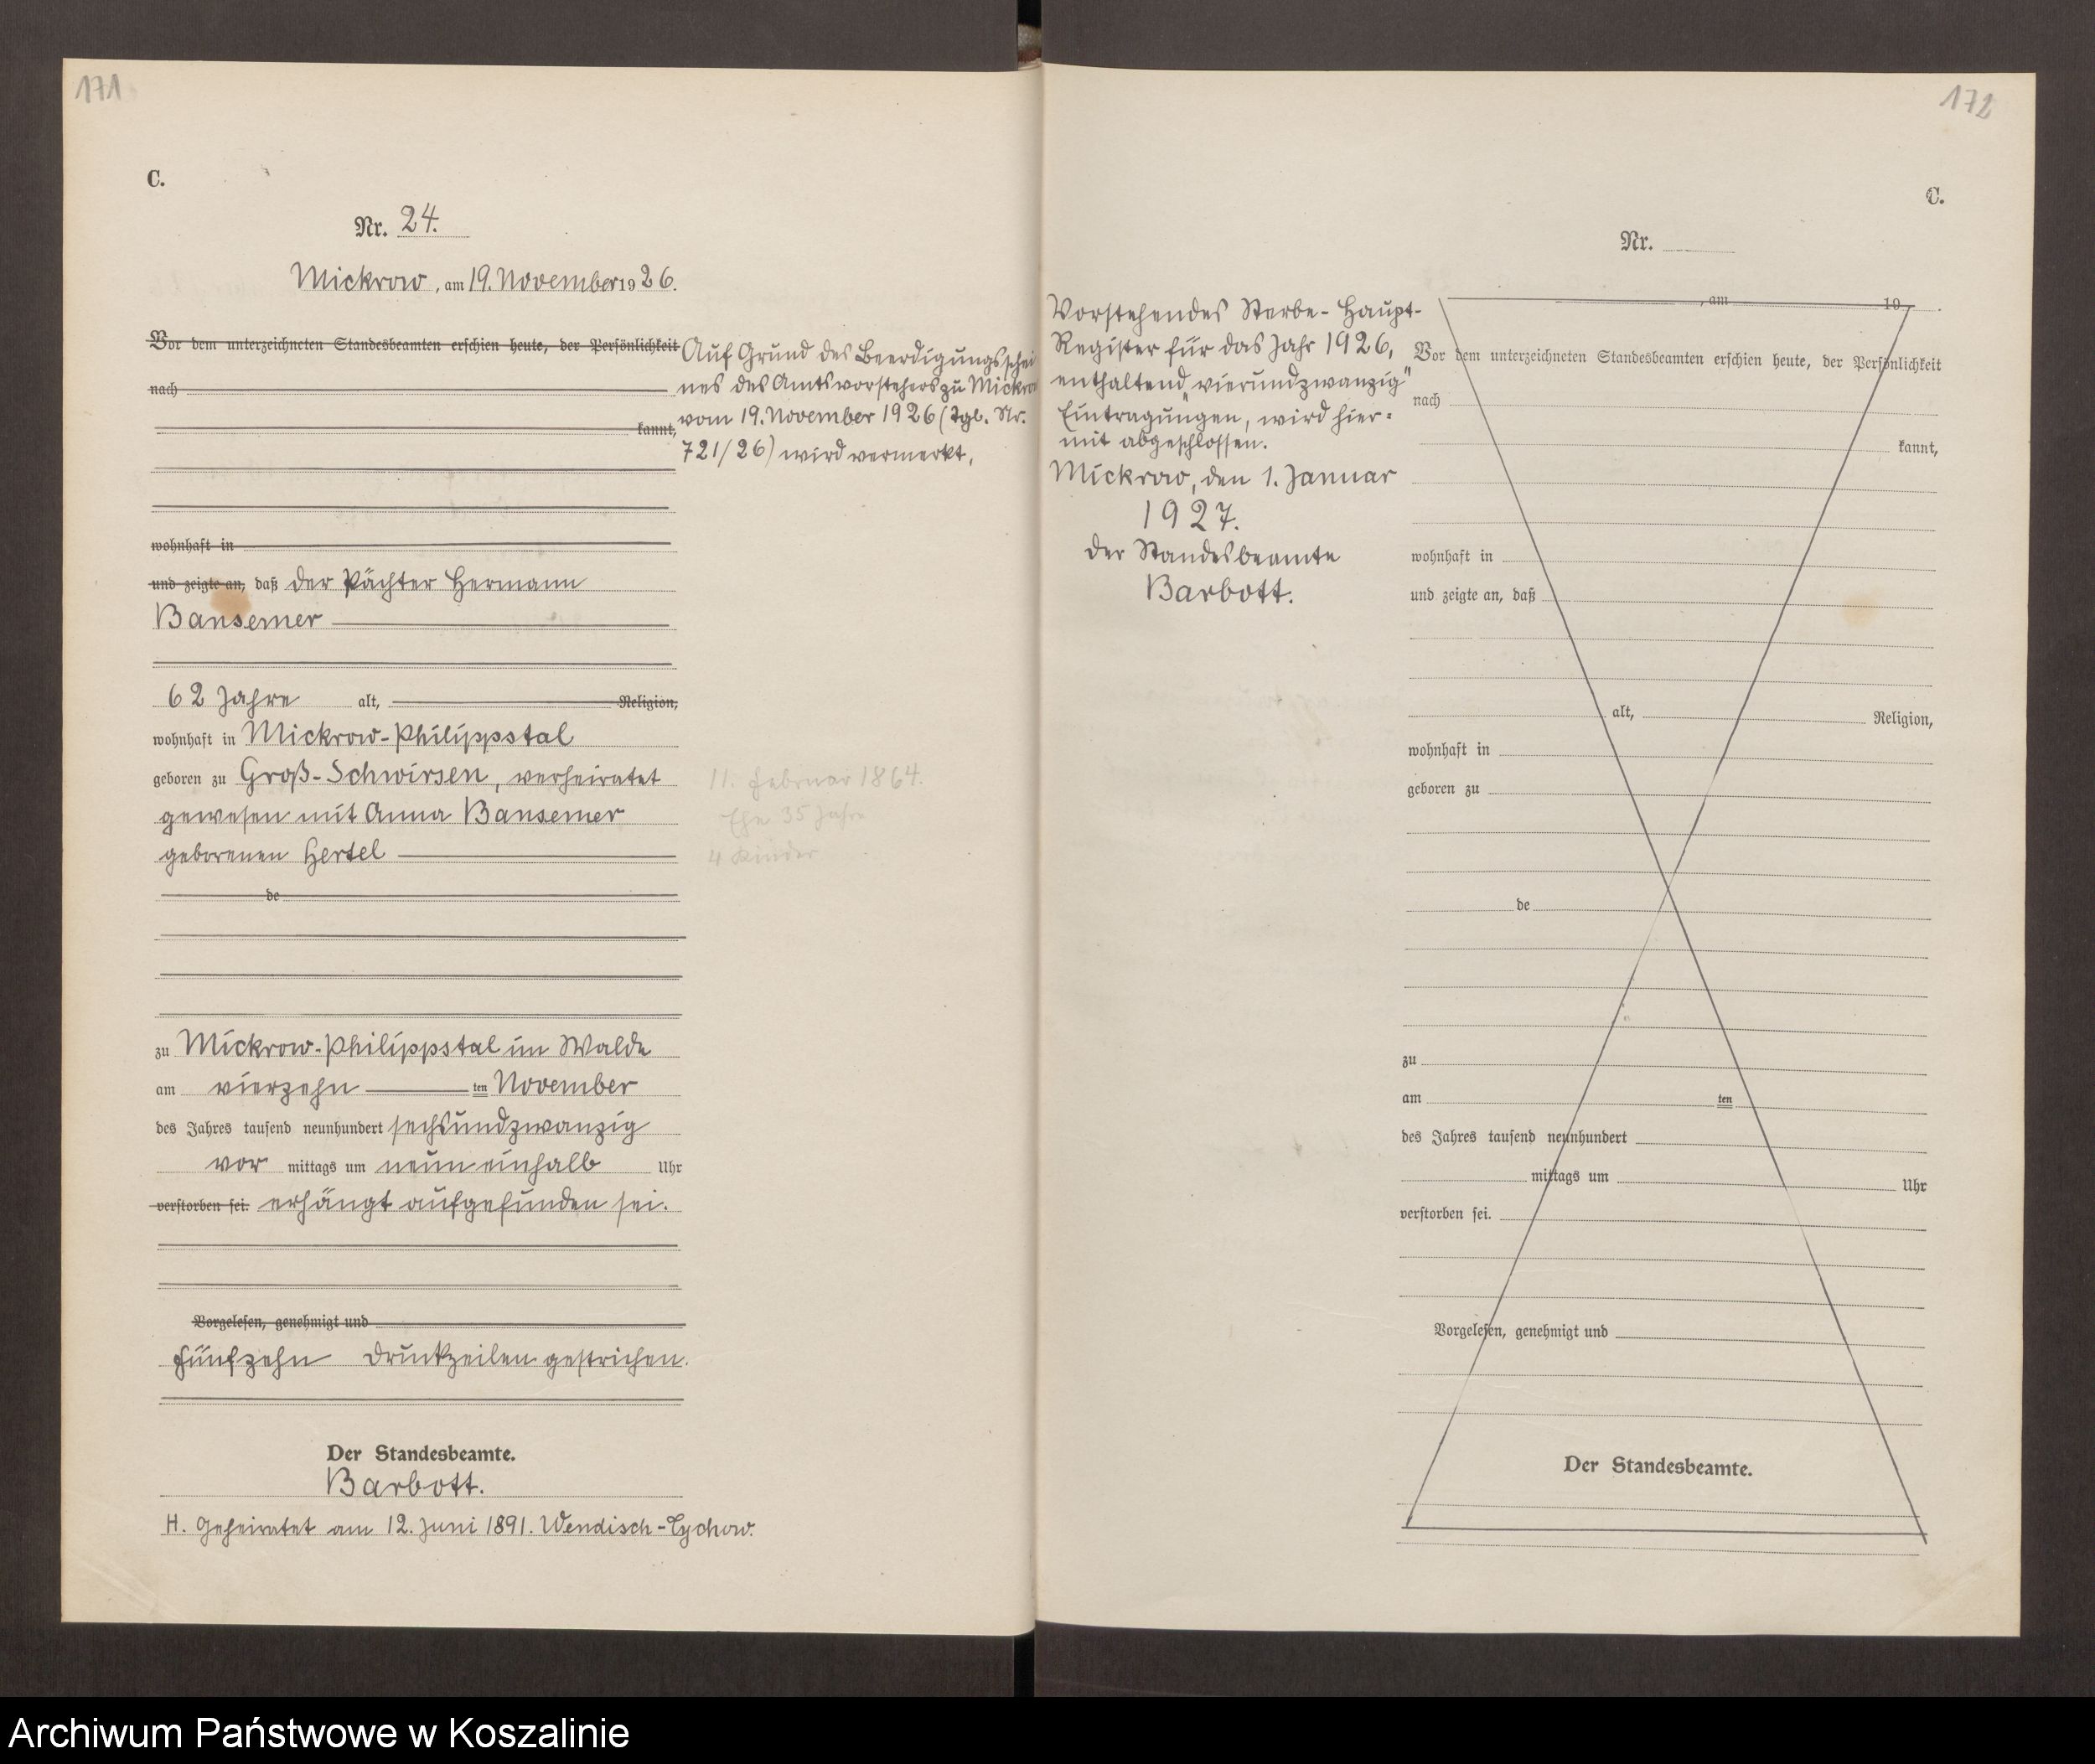 171
C.
Nr. 24.
Mickrow, am 19. November 1926.
Vor dem unterzeichneten Standesbeamten erschien heute, der Persönlichkeit
nach
kannt,
Auf Grund des Beerdigungsschei
nes des Amtsvorstehers zu Mickrow
vom 19. November 1926 (Tgb. Nr.
721/26) wird vermerkt,
wohnhaft in
und zeigte an, daß der Pächter Hermann
Bansemer
62 Jahre alt, Religion,
wohnhaft in Mickrow-Philippstal
geboren zu Groß-Schwirsen, verheiratet
gewesen mit Anna Bansemer
geborenen Hertel
11. Februar 1864.
Ehe 35 Jahre
4 Kinder
de
zu Mickrow-Philippstal im Walde
am vierzehn ten November
des Jahres tausend neunhundert sechsundzwanzig
vor mittags um neun einhalb Uhr
verstorben sei. erhängt aufgefunden sei.
Vorgelesen, genehmigt und
Fünfzehn Druckzeilen gestrichen.
Der Standesbeamte.
Barbott.
H. Geheiratet am 12. Juni 1891. Wendisch-Tychow.
172
C.
Nr.
, am 19
Vorstehendes Sterbe-Haupt-
Register für das Jahr 1926,
enthaltend „vierundzwanzig"
Eintragungen, wird hier=
mit abgeschlossen.
Mickrow, den 1. Januar
1927.
Der Standesbeamte
Barbott.
Vor dem unterzeichneten Standesbeamten erschien heute, der Persönlichkeit
nach
kannt,
wohnhaft in
und zeigte an, daß
alt, Religion,
wohnhaft in
geboren zu
de
zu
am ten
des Jahres tausend neunhundert
mittags um Uhr
verstorben sei.
Vorgelesen, genehmigt und
Der Standesbeamte.
Archiwum Państwowe w Koszalinie